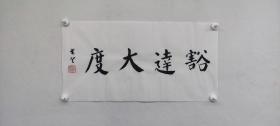 豁達大度